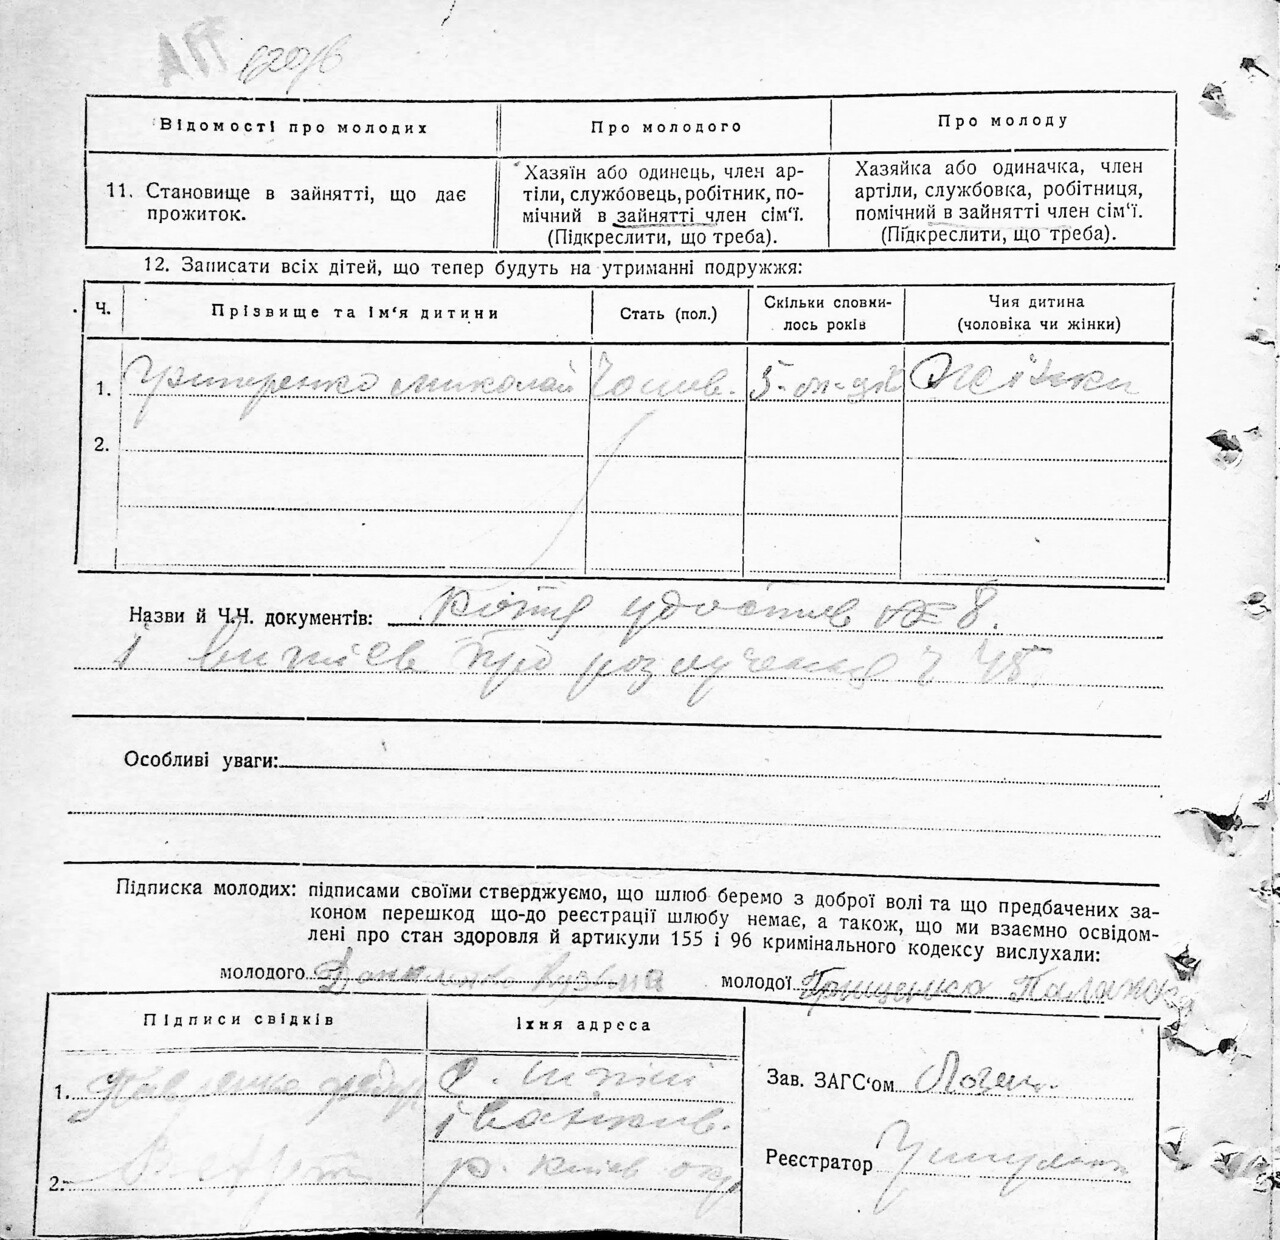 Відомості про молодих
Про молодого
Про молоду
11. Становище в зайнятті, що дає
прожиток.
Хазяїн або одинець, член ар-
тіли, службовець, робітник, по-
мічний в зайнятті член сім'ї.
(Підкреслити, що треба).
Хазяйка або одиначка, член
артіли, службовка, робітниця,
помічний в зайнятті член сім'ї.
(Підкреслити, що треба).
12. Записати всіх дітей, що тепер будуть на утриманні подружжя:
Ч.
Прізвище та ім'я дитини
Стать (пол.)
Скільки сповни-
лось років
Чия дитина
(чоловіка чи жінки)
1. Миколай Чолов. 5 Жінки
2.
Назви й Ч.Ч. документів: удостов № 8.
1 витяг про розлучення Ч 45
Особливі уваги:
Підписка молодих: підписами своїми стверджуємо, що шлюб беремо з доброї волі та що предбачених за-
коном перешкод що-до реєстрації шлюбу немає, а також, що ми взаємно освідом-
лені про стан здоровля й артикули 155 і 96 кримінального кодексу вислухали:
молодого Даниленко Кузьма молодої Грищенко Палажка
Підписи свідків
Їхня адреса
1. Павленко Федір с.
Зав. ЗАГС'ом
2. р. Київ окр
Реєстратор